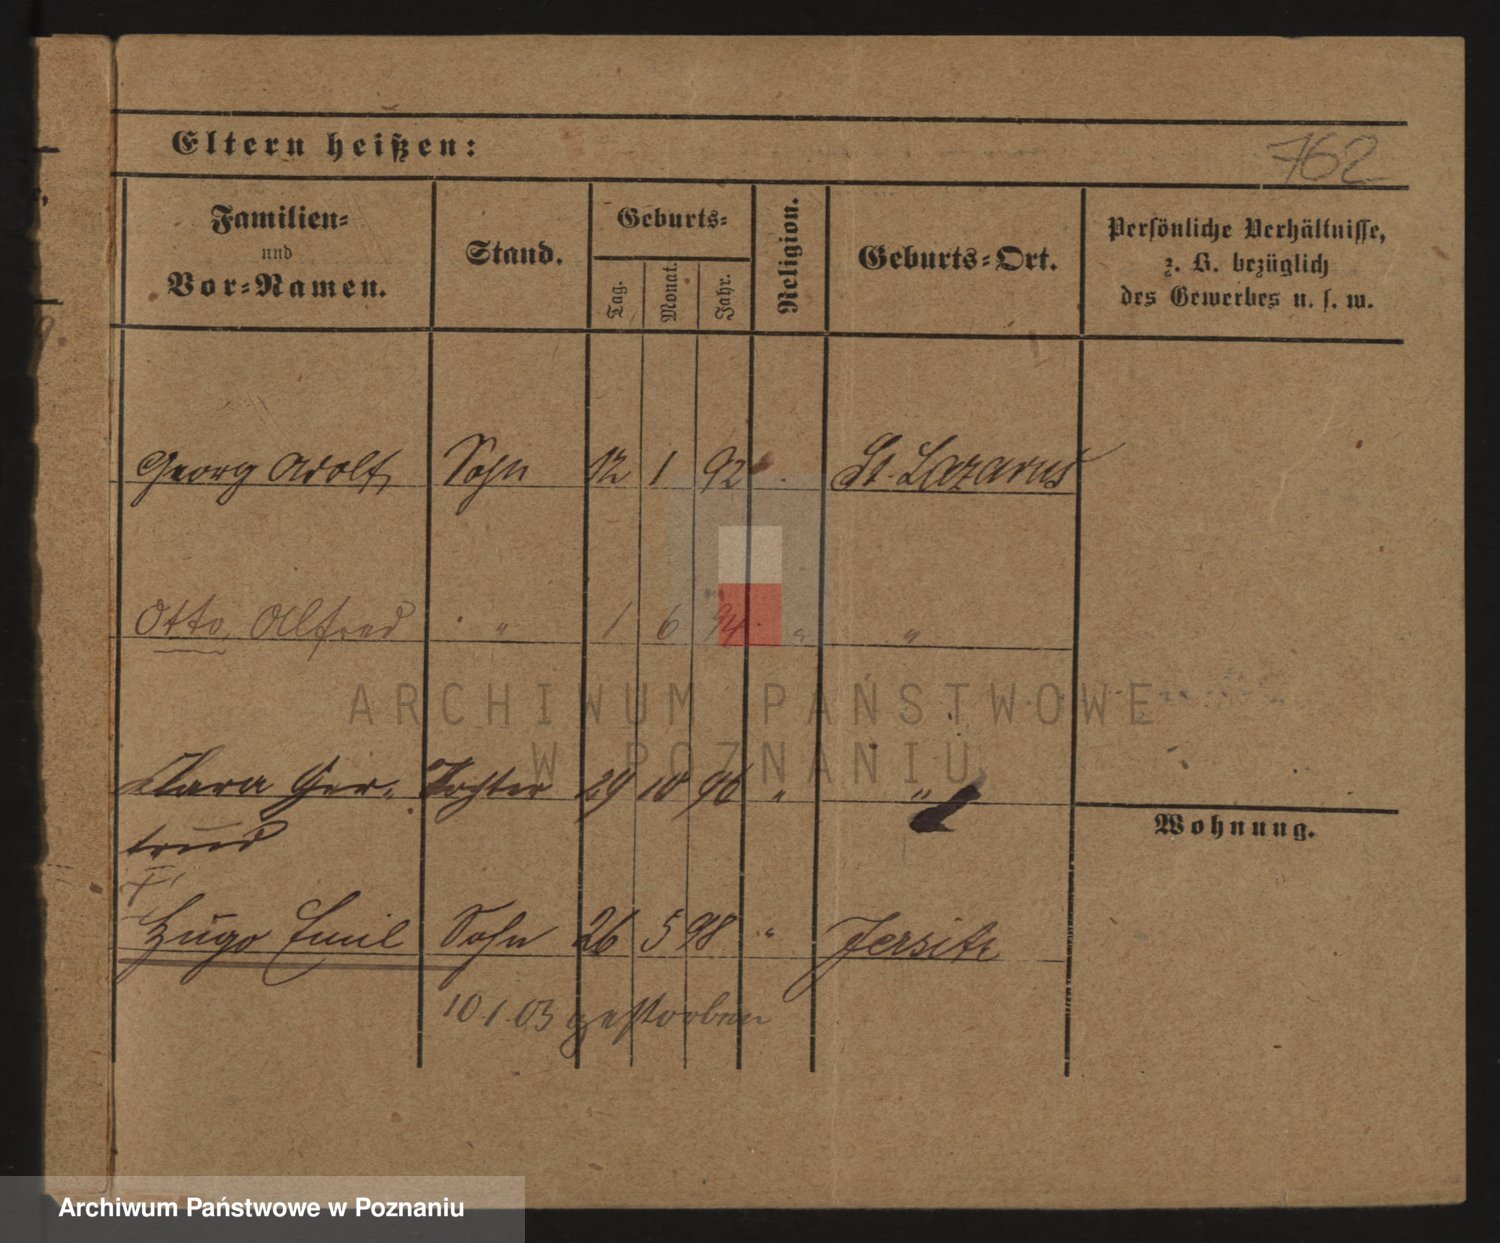 Eltern heißen:
762
Familien-
und
Vor-Namen.
Stand.
Geburts-
Tag.
Monat.
Jahr.
Religion.
Geburts-Ort.
Persönliche Verhältnisse,
z. B. bezüglich
des Gewerbes u. s. w.
Georg Adolf Sohn 12 1 92 St. Lazarus
Otto Alfred " 1 6 94 " "
ARCHIWUM PAŃSTWOWE
W POZNANIU
Clara Ger- Tochter 29 10 96 " "
trud
Wohnung.
Hugo Emil Sohn 26 5 98 " Jersitz
10.1.03 gestorben
Archiwum Państwowe w Poznaniu